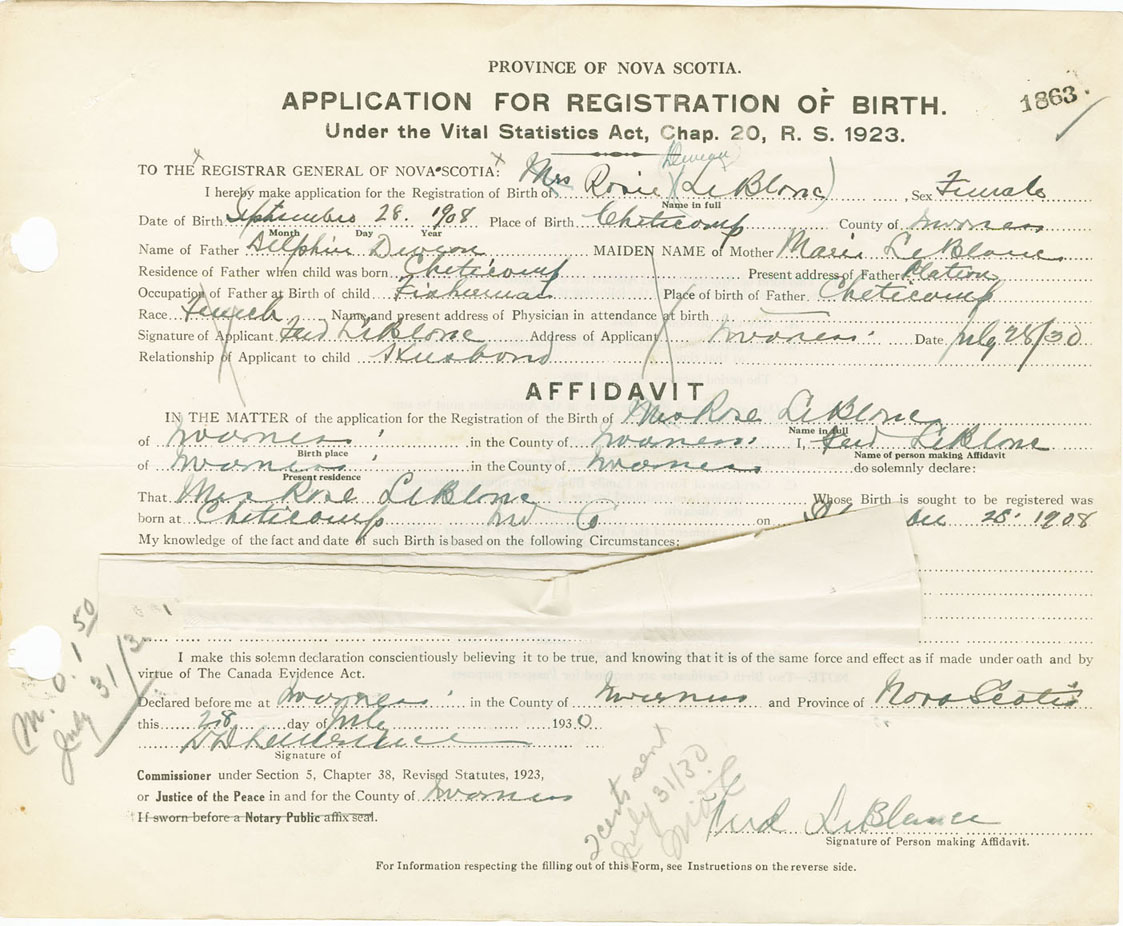 PROVINCE OF NOVA SCOTIA.
APPLICATION FOR REGISTRATION OF BIRTH.
1863
Under the Vital Statistics Act, Chap. 20, R. S. 1923.
TO THE REGISTRAR GENERAL OF NOVA SCOTIA:
I hereby make application for the Registration of Birth of Mrs Rosie (LeBlanc) Sex Female
Name in full
Date of Birth September 28. 1908 Place of Birth Cheticamp County of Inverness
Month Day Year
Name of Father Delphin Deveau MAIDEN NAME of Mother Marie LeBlanc
Residence of Father when child was born Cheticamp Present address of Father Plateau
Occupation of Father at Birth of child Fisherman Place of birth of Father. Cheticamp
Race French Name and present address of Physician in attendance at birth
Signature of Applicant Ferd LeBlanc Address of Applicant Inverness Date July 28/30
Relationship of Applicant to child Husband
AFFIDAVIT
IN THE MATTER of the application for the Registration of the Birth of Mrs Rose LeBlanc
Name in full
of Inverness in the County of Inverness I, Ferd LeBlanc
Birth place Name of person making Affidavit
of Inverness in the County of Inverness do solemnly declare:
Present residence
That Mrs Rose LeBlanc Whose Birth is sought to be registered was
born at Cheticamp Inv Co on 28. 1908
My knowledge of the fact and date of such Birth is based on the following Circumstances:
I make this solemn declaration conscientiously believing it to be true, and knowing that it is of the same force and effect as if made under oath and by
virtue of The Canada Evidence Act.
Declared before me at Inverness in the County of Inverness and Province of Nova Scotia
this 28 day of July 1930
Signature of
Commissioner under Section 5, Chapter 38, Revised Statutes, 1923,
or Justice of the Peace in and for the County of Inverness
If sworn before a Notary Public affix seal.
Ferd LeBlanc
Signature of Person making Affidavit.
For Information respecting the filling out of this Form, see Instructions on the reverse side.
M. O. 1 50
July 31/3
2 cents sent
July 31/30.